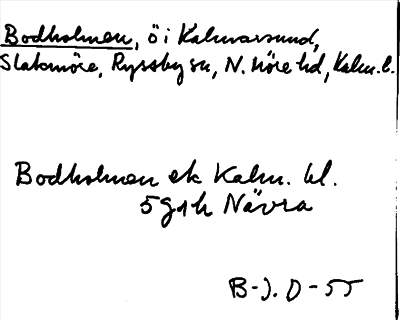 Bodholmen, ö i Kalmarsund,
Slakmöre, Ryssby sn, N. Möre hd, Kalm. l.
Bodholmen ek Kalm. bl.
5g1h Nävra
B-J. D-55